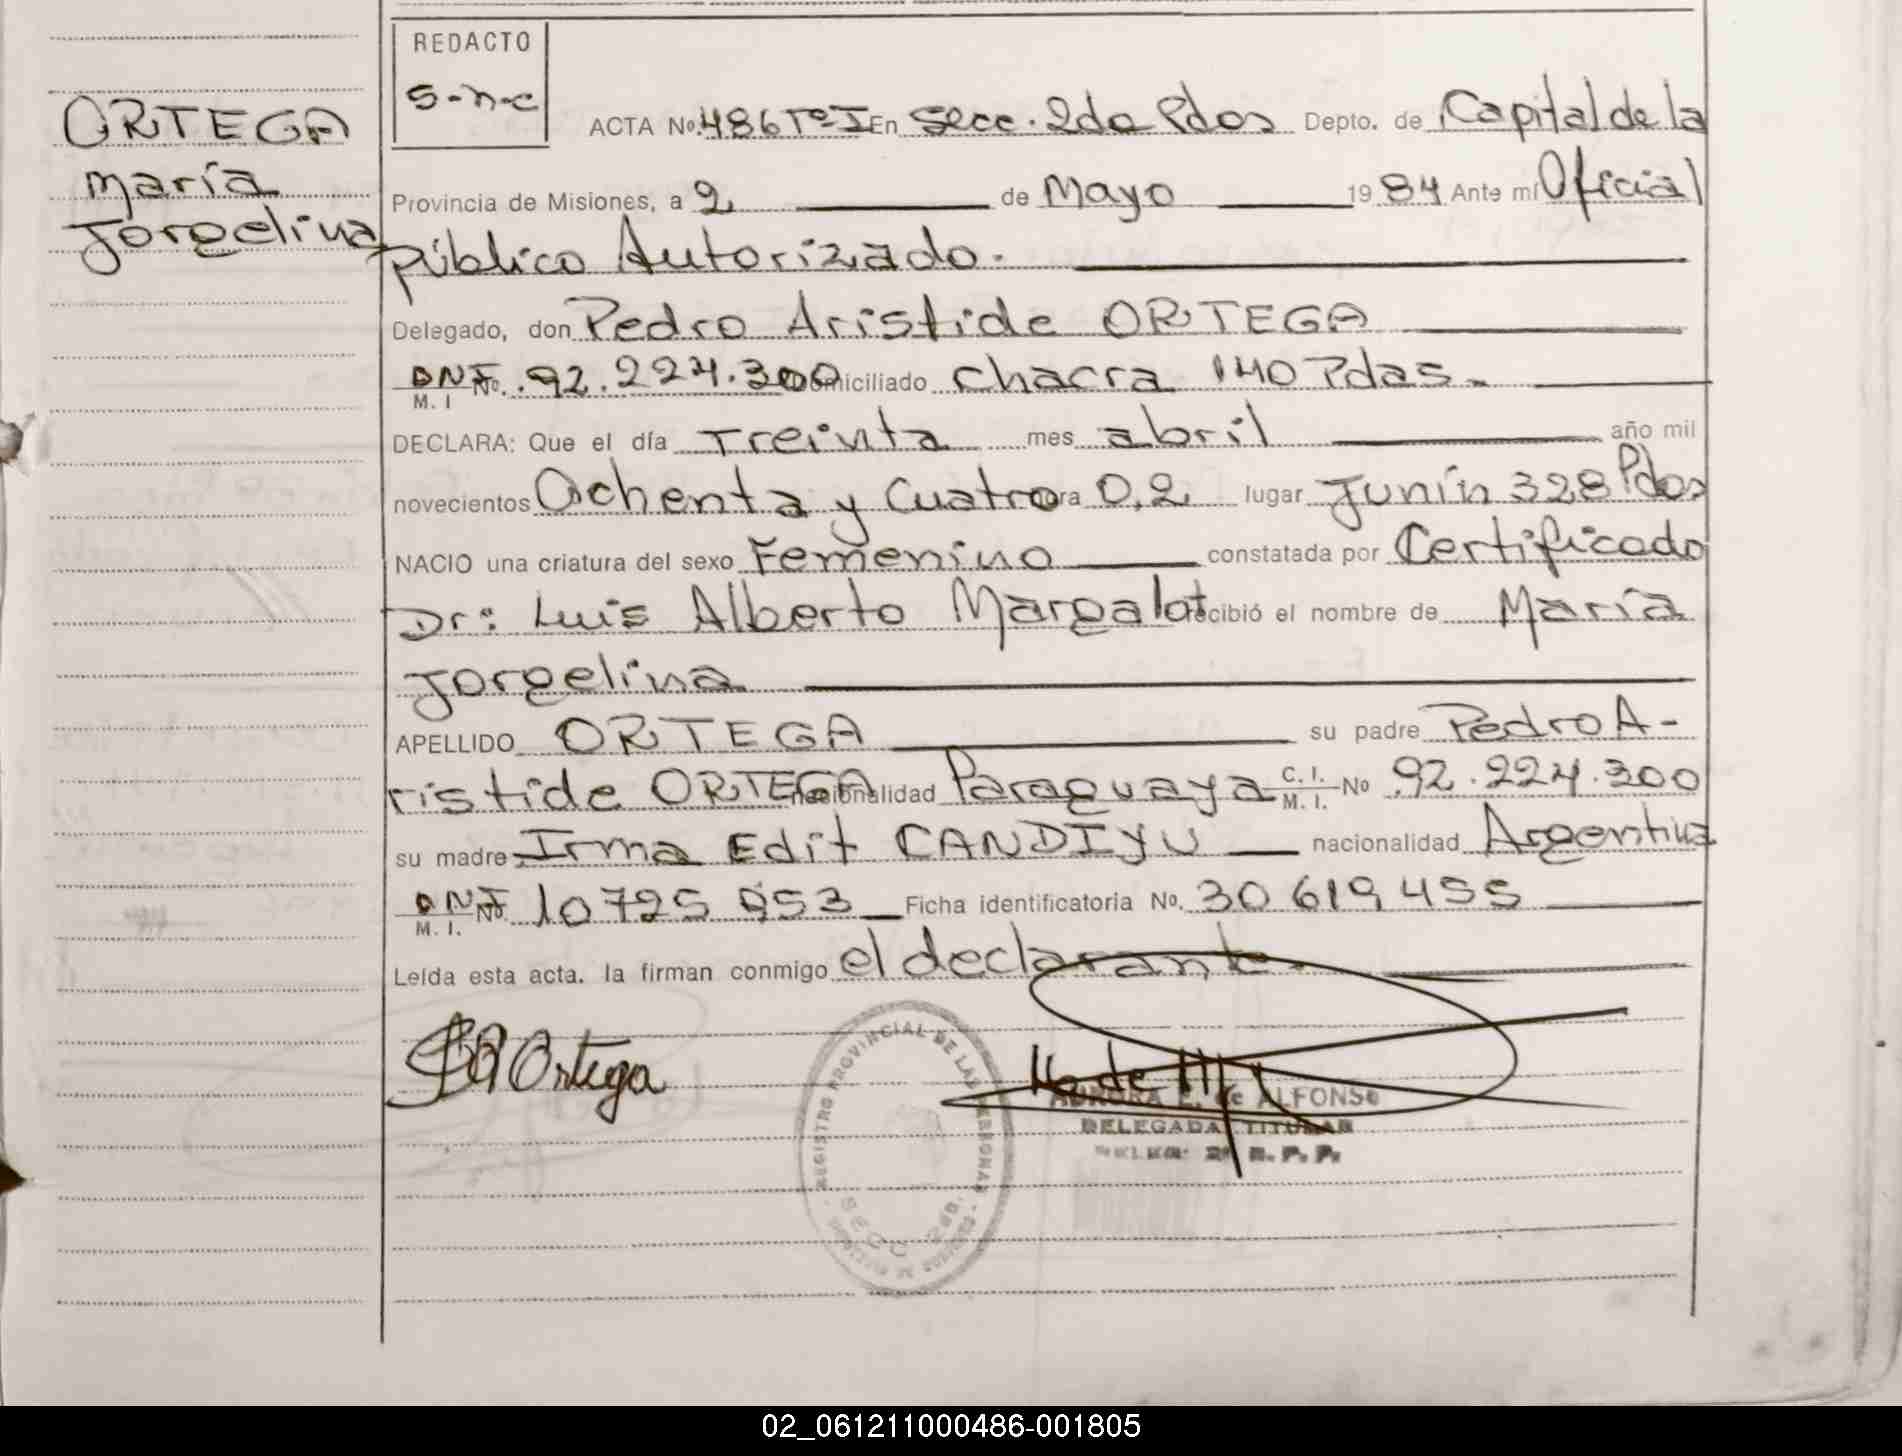 ORTEGA
María
Jorgelina
REDACTO
S-n-c
ACTA No. 486 Tº I En Secc. 2da Pdas Depto. de Capital de la
Provincia de Misiones, a 2 de Mayo 1984 Ante mí Oficial
público Autorizado.
Delegado, don Pedro Aristide ORTEGA
DNI No. 92.224.300 domiciliado chacra 140 Pdas.
M. I
DECLARA: Que el día Treinta mes abril año mil
novecientos Ochenta y Cuatro hora 0,2 lugar Junín 328 Pdas
NACIO una criatura del sexo Femenino constatada por Certificado
Dr: Luis Alberto Margalot recibió el nombre de María
Jorgelina
APELLIDO ORTEGA su padre Pedro A-
ristide ORTEGA nacionalidad Paraguaya C. I. M. I. No 92.224.300
su madre Irma Edit CANDIYU nacionalidad Argentina
DNI No. 10725 953 Ficha identificatoria No. 30 619 455
M. I.
Leída esta acta. la firman conmigo el declarante.
Ortega
REGISTRO PROVINCIAL DE LAS PERSONAS
SECC 2da.
AURORA E. de ALFONSO
DELEGADA TITULAR
R. P. P.
02_061211000486-001805